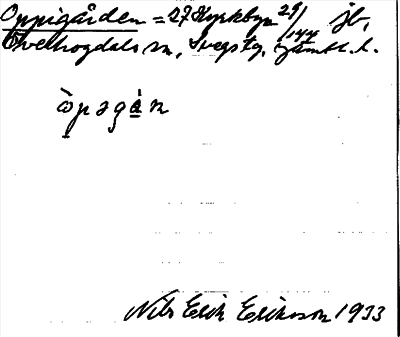 Oppigården = 27 Kyrkbyn 29/144 jb,
Överhogdals sn, Svegs tg, Jämtl. l.
ò̱pəgá̱n
Nils Erik Eriksson 1933